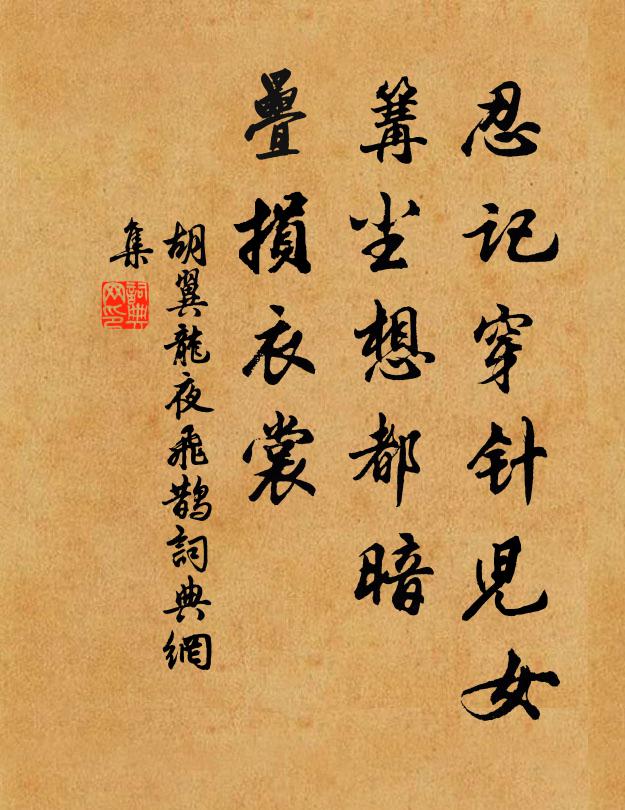 忍记穿针兒女
篝尘想都暗
疊損衣裳
胡翼龍夜飛鵲詞典網
集
詞典网印